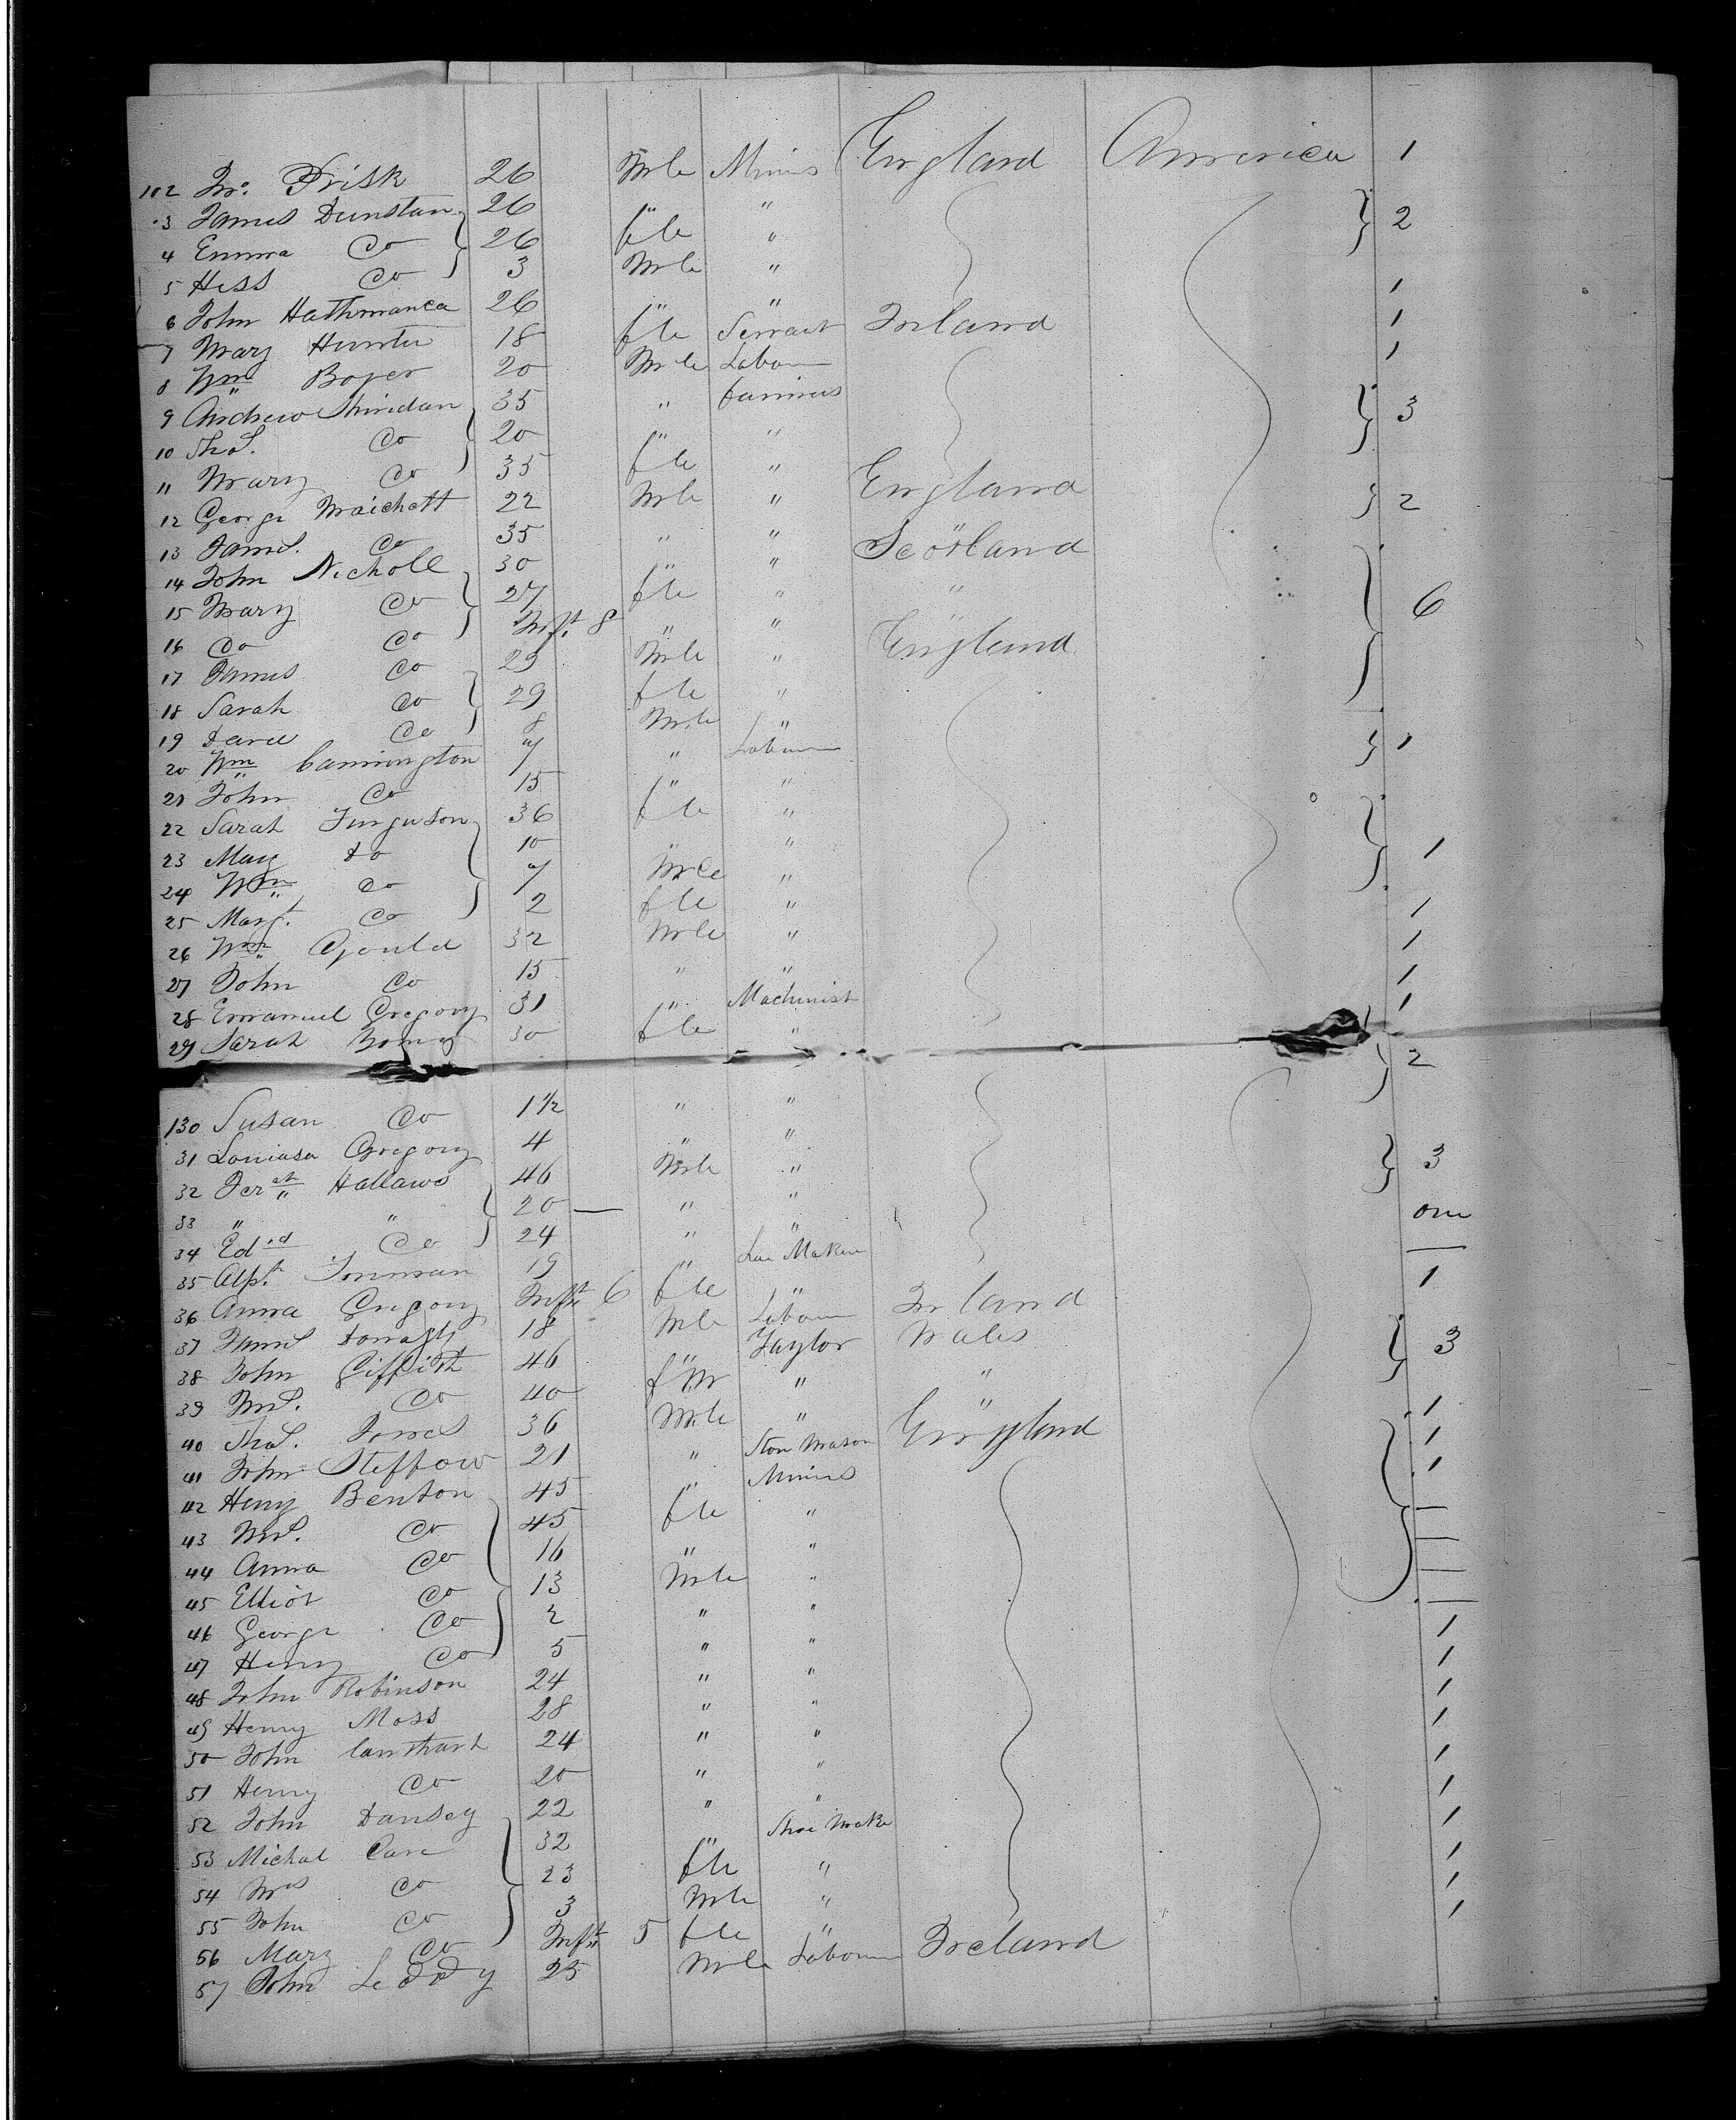 102 Jno. Frisk 26 Mle Miner England America 1
3 James Dunstan 26 " "
4 Emma Do 26 fle " 2
5 Hess Do 3 Mle "
6 John 26 " " 1
7 Mary Hunter 18 fle Servant Ireland 1
8 Wm Boyer 20 Mle Labour 1
9 Andrew Shiridan 35 " farmers
10 Thos. Do 20 " " 3
11 Mary Do 35 fle "
12 George 22 Mle " England 2
13 James. Do 35 " "
14 John Nicholl 30 " " Scotland
15 Mary Do 27 fle " "
16 Do Do Inft. 8 " " " 6
17 James Do 29 Mle " England
18 Sarah Do 29 fle "
19 David Do 8 Mle "
20 Wm Cannington 7 " Labour 1
21 John Do 15 " "
22 Sarah Furguson 36 fle "
23 Mary Do 10 " " 1
24 Wm Do 7 Mle "
25 Margt. Do 2 fle " 1
26 Wm Gould 32 Mle " 1
27 John Do 15 " " 1
28 Emanuel Gregory 31 " Machinist 1
29 Sarah 30 fle " 2
130 Susan Do 1 1/2 " "
31 Louiasa Gregory 4 " "
32 Hallaws 46 Mle " 3
33 " " 20 — " "
34 Edwd Do 24 " " one
35 Alpt. 19 " Lace Maker —
36 Anna Gregory Inft 6 fle " 1
37 James 18 Mle Labour Irland
38 John Giffith 46 " Taylor Wales 3
39 Mrs. Do 40 fm " "
40 Thos. Jones 36 Mle " " 1
41 John Steffow 21 " Ston Mason England 1
42 Heny Benton 45 " Miners 1
43 Mrs. Do 45 fle " —
44 Anna Do 16 " " —
45 Elliot Do 13 Mle " —
46 George Do 2 " " —
47 Henry Do 5 " " 1
48 John Robinson 24 " " 1
49 Henry Moss 28 " " 1
50 John 24 " " 1
51 Henry Do 20 " " 1
52 John Dansey 22 " " 1
53 Michal Care 32 " Shoe Make 1
54 Mrs Do 23 fle " 1
55 John Do 3 Mle " 1
56 Mary Do Inft 5 fle " 1
57 John Leddy 25 Mle Labour Ireland